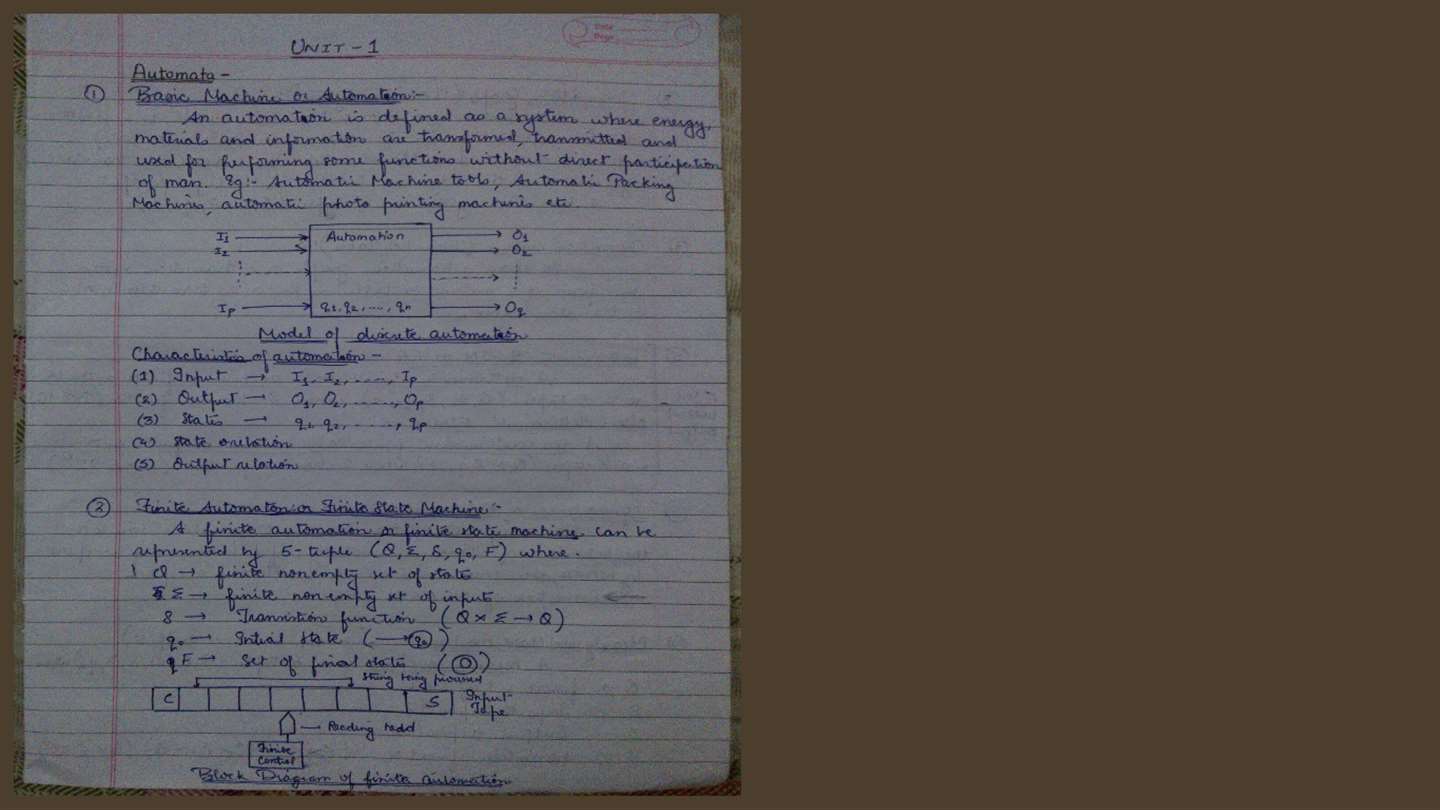 Date
Page
UNIT-1
Automata -
① Basic Machine or Automation:-
An automation is defined as a system where energy,
materials and information are transformed, transmitted and
used for performing some functions without direct participation
of man. Eg:- Automatic Machine tools, Automatic Packing
Machines, automatic photo printing machines etc.
I1 Automation O1
I2 O2
Ip q1, q2, ...., qn Oq
Model of discrete automation
Characteristics of automation -
(1) Input → I1, I2, ......, Ip
(2) Output → O1, O2, ......, Op
(3) States → q1, q2, ......, qp
(4) State relation
(5) Output relation
② Finite Automaton or Finite State Machine:-
A finite automation or finite state machine can be
represented by 5-tuple (Q, Σ, δ, q0, F) where.
Q → finite nonempty set of state
Σ → finite nonempty set of inputs
δ → Transition function (Q × Σ → Q)
q0 → Initial State (→q0)
F → Set of final states
String being processed
C S Input
Tape
Reading
Finite
Control
Block Diagram of finite automation